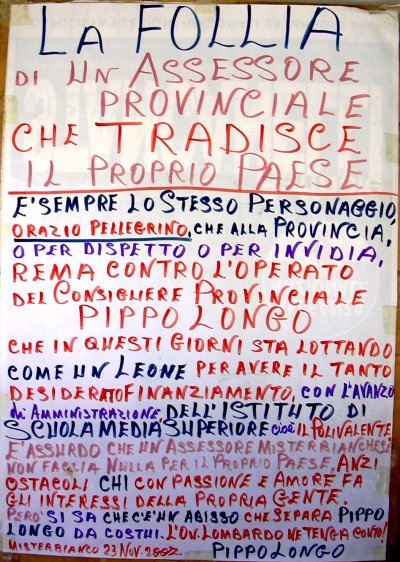 LA FOLLIA
DI UN ASSESSORE
PROVINCIALE
CHE TRADISCE
IL PROPRIO PAESE
E'SEMPRE LO STESSO PERSONAGGIO,
ORAZIO PELLEGRINO, CHE ALLA PROVINCIA,
O PER DISPETTO O PER INVIDIA,
REMA CONTRO L'OPERATO
DEL CONSIGLIERE PROVINCIALE
PIPPO LONGO
CHE IN QUESTI GIORNI STA LOTTANDO
COME UN LEONE PER AVERE IL TANTO
DESIDERATO FINANZIAMENTO, CON L'AVANZO
di AMMINISTRAZIONE, DELL'ISTITUTO DI
SCUOLA MEDIA SUPERIORE cioè IL POLIVALENTE.
E' ASSURDO CHE UN ASSESSORE MISTERBIANCHESE
NON FACCIA NULLA PER IL PROPRIO PAESE, ANZI
OSTACOLI CHI CON PASSIONE E AMORE FA
GLI INTERESSI DELLA PROPRIA GENTE.
PERO' SI SA CHE C'E' UN ABISSO CHE SEPARA PIPPO
LONGO DA COSTUI. L'ON. LOMBARDO NE TENGA CONTO!
MISTERBIANCO 23 NOV. 2007. PIPPO LONGO